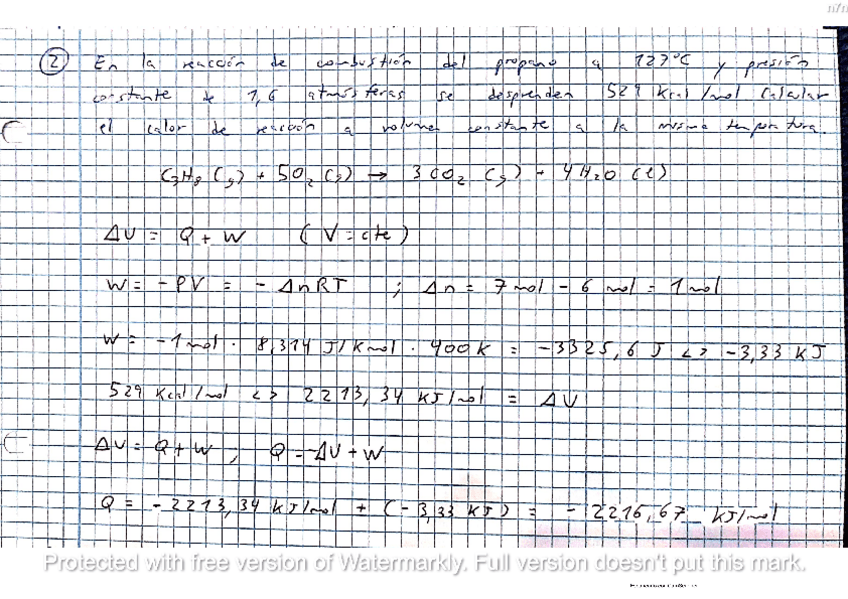 2 En la reacción de combustión del propano a 127ºC y presión
constante de 1,6 atmósferas se desprenden 529 Kcal/mol Calcular
el calor de reacción a volumen constante a la misma temperatura.
C3H8 (g) + 5O2 (g) → 3CO2 (g) + 4H2O (l)
ΔU = Q + W (V = cte)
W = -PV = - ΔnRT ; Δn = 7 mol - 6 mol = 1 mol
W = -1 mol · 8,314 J/K mol · 400 K = -3325,6 J <> -3,33 KJ
529 Kcal/mol <> 2213,34 KJ/mol = ΔU
ΔU = Q + W ; Q = -ΔU + W
Q = -2213,34 KJ/mol + (-3,33 KJ) = -2216,67 KJ/mol
Protected with free version of Watermarkly. Full version doesn't put this mark.